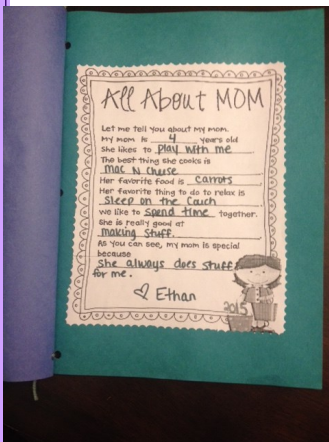 All About MOM
Let me tell you about my mom.
My mom is 4 years old
She likes to play with me
The best thing she cooks is
Mac N Cheese.
Her favorite food is carrots.
Her favorite thing to do to relax is
Sleep on the Couch
We like to spend time together.
She is really good at
making stuff.
As you can see, my mom is special
because
She always does stuff
for me.
♡ Ethan
2015